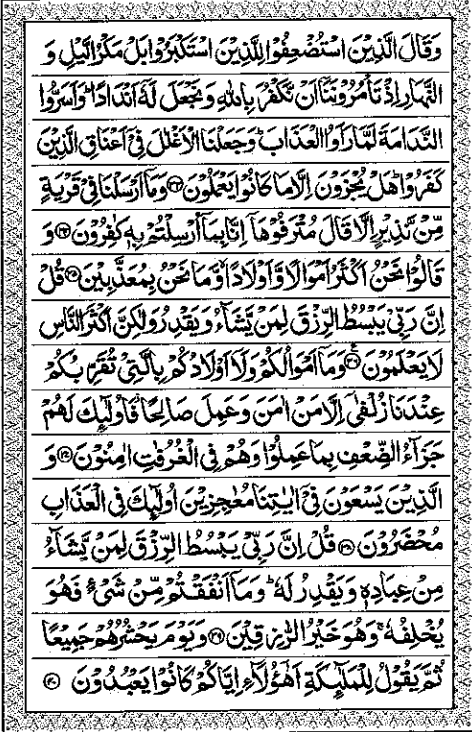 وَقَالَ الَّذِيْنَ اسْتُضْعِفُوْا لِلَّذِيْنَ اسْتَكْبَرُوْا بَلْ مَكْرُ الَّيْلِ وَ
النَّهَارِ اِذْ تَاْمُرُوْنَنَآ اَنْ نَّكْفُرَ بِاللّٰهِ وَ نَجْعَلَ لَهٗٓ اَنْدَادًاؕ وَاَسَرُّوا
النَّدَامَةَ لَمَّا رَاَوُا الْعَذَابَؕ وَجَعَلْنَا الْاَغْلٰلَ فِيْٓ اَعْنَاقِ الَّذِيْنَ
كَفَرُوْاؕ هَلْ يُجْزَوْنَ اِلَّا مَا كَانُوْا يَعْمَلُوْنَ ﴿۳۳﴾ وَمَآ اَرْسَلْنَا فِيْ قَرْيَةٍ
مِّنْ نَّذِيْرٍ اِلَّا قَالَ مُتْرَفُوْهَآ اِنَّا بِمَآ اُرْسِلْتُمْ بِهٖ كٰفِرُوْنَ ﴿۳۴﴾ وَ
قَالُوْا نَحْنُ اَكْثَرُ اَمْوَالًا وَّ اَوْلَادًا وَّ مَا نَحْنُ بِمُعَذَّبِيْنَ ﴿۳۵﴾ قُلْ
اِنَّ رَبِّيْ يَبْسُطُ الرِّزْقَ لِمَنْ يَّشَآءُ وَ يَقْدِرُ وَلٰكِنَّ اَكْثَرَ النَّاسِ
لَا يَعْلَمُوْنَ ﴿۳۶﴾ وَمَآ اَمْوَالُكُمْ وَلَآ اَوْلَادُكُمْ بِالَّتِيْ تُقَرِّبُكُمْ
عِنْدَنَا زُلْفٰٓى اِلَّا مَنْ اٰمَنَ وَ عَمِلَ صَالِحًا فَاُولٰٓئِكَ لَهُمْ
جَزَآءُ الضِّعْفِ بِمَا عَمِلُوْا وَهُمْ فِي الْغُرُفٰتِ اٰمِنُوْنَ ﴿۳۷﴾ وَ
الَّذِيْنَ يَسْعَوْنَ فِيْٓ اٰيٰتِنَا مُعٰجِزِيْنَ اُولٰٓئِكَ فِي الْعَذَابِ
مُحْضَرُوْنَ ﴿۳۸﴾ قُلْ اِنَّ رَبِّيْ يَبْسُطُ الرِّزْقَ لِمَنْ يَّشَآءُ
مِنْ عِبَادِهٖ وَ يَقْدِرُ لَهٗؕ وَمَآ اَنْفَقْتُمْ مِّنْ شَيْءٍ فَهُوَ
يُخْلِفُهٗۚ وَهُوَ خَيْرُ الرّٰزِقِيْنَ ﴿۳۹﴾ وَ يَوْمَ يَحْشُرُهُمْ جَمِيْعًا
ثُمَّ يَقُوْلُ لِلْمَلٰٓئِكَةِ اَهٰٓؤُلَآءِ اِيَّاكُمْ كَانُوْا يَعْبُدُوْنَ ﴿۴۰﴾